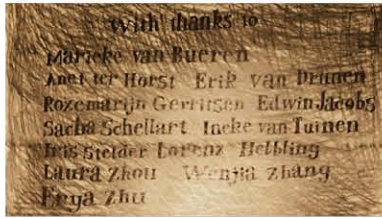 With thanks to
Marieke van Bueren
Anet ter Horst Erik van Drunen
Rozemarijn Gerritsen Edwin Jacobs
Sacha Schellart Ineke van Tuinen
Iris Stelder Lorenz Helbling
Laura Zhou Wenjia Zhang
Enya Zhu